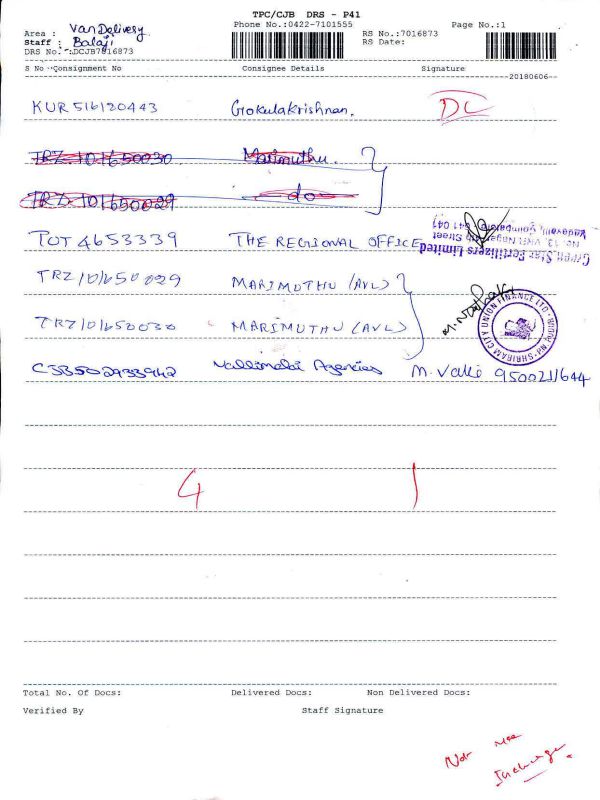 TPC/CJB DRS - P41
Phone No.:0422-7101555 Page No.:1
Area : Van Delivery RS No.:7016873
Staff : Balaji RS Date:
DRS No.:DCJB7016873
S No Consignment No Consignee Details Signature
20180606
KUR516120443 Gokulakrishnan. DC
TRZ101650030 Marimuthu.
TRZ101650029 do
TUT 4653339 THE REGIONAL OFFICE
Green Star Fertilizers Limited
No. 13, VNR Nagar, Street
Vadavalli, Coimbatore 641 041
TRZ101650029 MARIMUTHU (AVL)
TRZ101650030 MARIMUTHU (AVL)
SHRIRAM CITY UNION FINANCE LTD
CJB502933942 Agencies M. Valli 9500211644
4 1
Total No. Of Docs: Delivered Docs: Non Delivered Docs:
Verified By Staff Signature
Not
Incharge